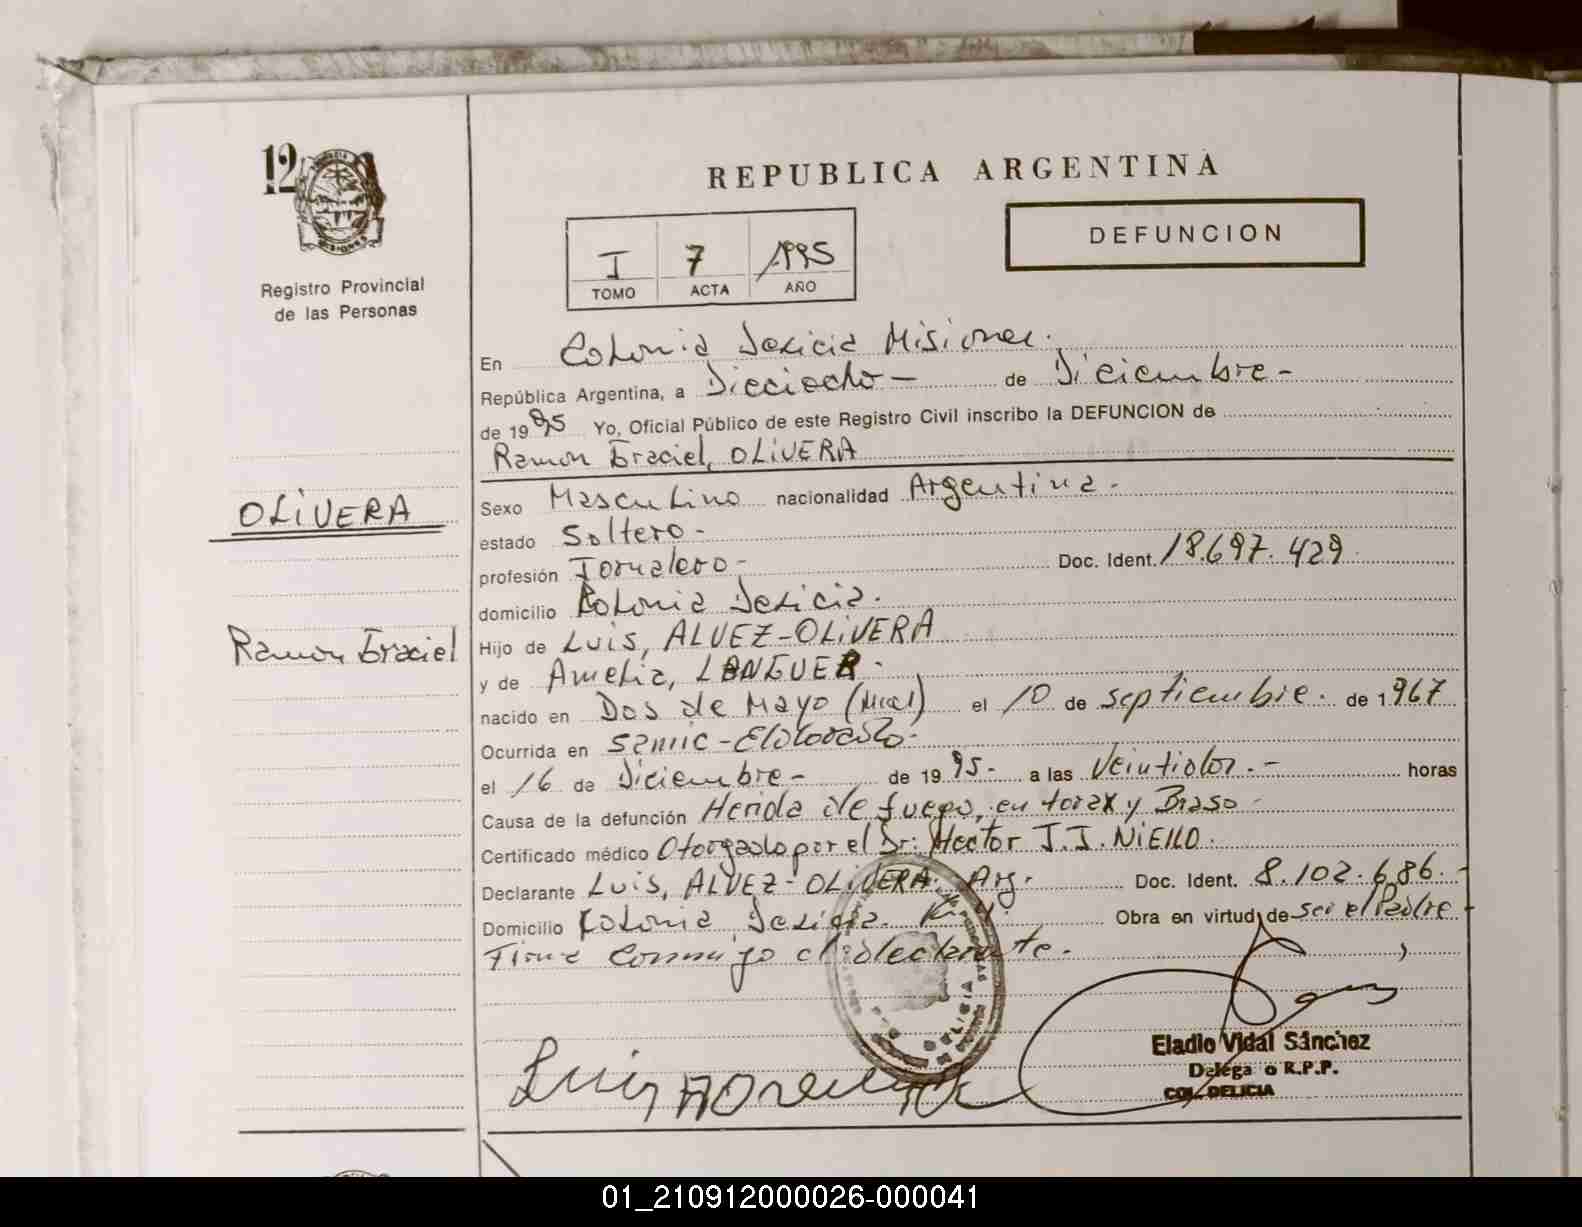 12
REPUBLICA ARGENTINA
DEFUNCION
I 7 1995
TOMO ACTA AÑO
Registro Provincial
de las Personas
En Colonia Delicia Misiones.
República Argentina, a Dieciocho - de Diciembre -
de 1995 Yo, Oficial Público de este Registro Civil inscribo la DEFUNCION de
Ramon Graciel, OLIVERA
OLIVERA
Ramon Graciel
Sexo Masculino nacionalidad Argentina -
estado Soltero -
profesión Jornalero - Doc. Ident. 18.697.429.
domicilio Colonia Delicia.
Hijo de Luis, ALVEZ-OLIVERA
y de Amelia,
nacido en Dos de Mayo (Mnes) el 10 de septiembre. de 1967
Ocurrida en Samic-Eldorado.
el 16 de Diciembre - de 1995.- a las Veintidos.- horas
Causa de la defunción Herida de fuego, en torax y Braso -
Certificado médico Otorgado por el Dr: Hector J.J. NiEllO.
Declarante Luis, ALVEZ-OLIVERA. Arg. Doc. Ident. 8.102.686.-
Domicilio Colonia Delicia. Obra en virtud de ser el Padre -
Firma Conmigo el declarante.
DELICIA
Eladio Vidal Sánchez
Delegado R.P.P.
COL. DELICIA
01_210912000026-000041